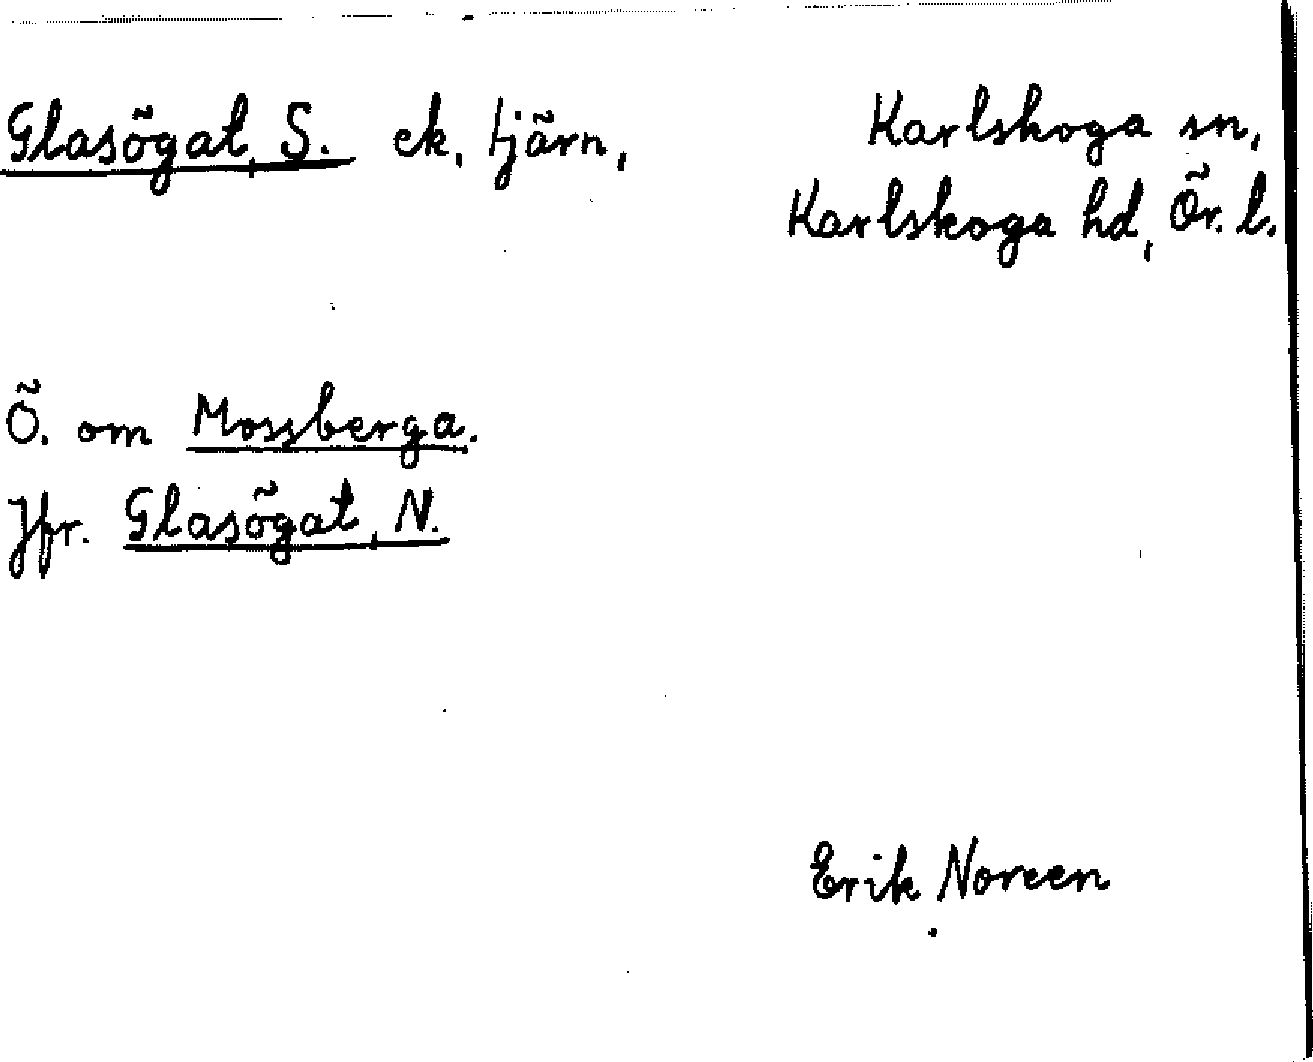 Glasögat, S. ek. tjärn,
Karlskoga sn,
Karlskoga hd, Ör. l.
Ö. om Mossberga.
Jfr. Glasögat, N.
Erik Noreen